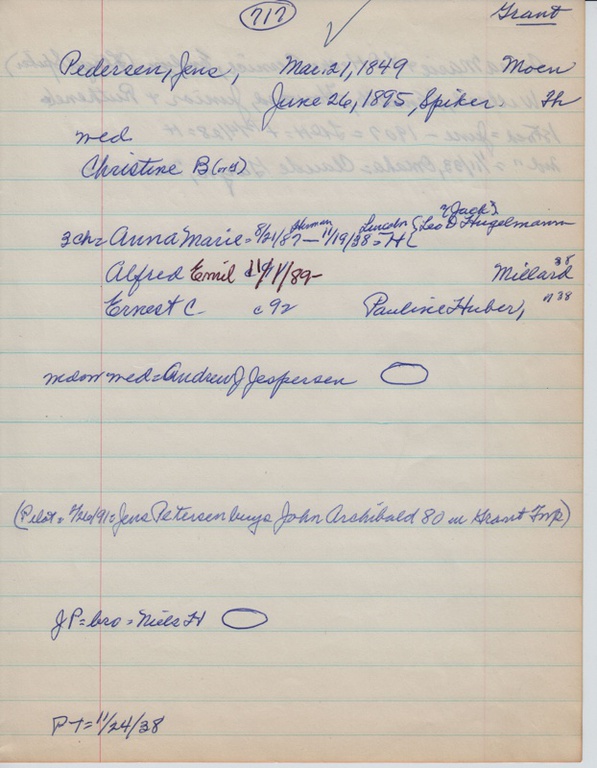 717 Grant
Pedersen, Jens, Mar. 21, 1849 Moen
June 26, 1895, Spiker Th
wed
Christine B (or H)
"Jack"
3ch = Anna Marie = 8/21/87 Herman — 11/19/38 = Lincoln H ( Leo D Hugelmann
Alfred Emil d 11/11/89- Millard 38
Ernest C c 92 Pauline Huber, 1138
widow wed = Andrew J Jespersen
(Pilot = 2/26/91 = Jens Petersen buys John Archibald 80 in Grant Twp)
JP = bro = Niels H
PT = 11/24/38